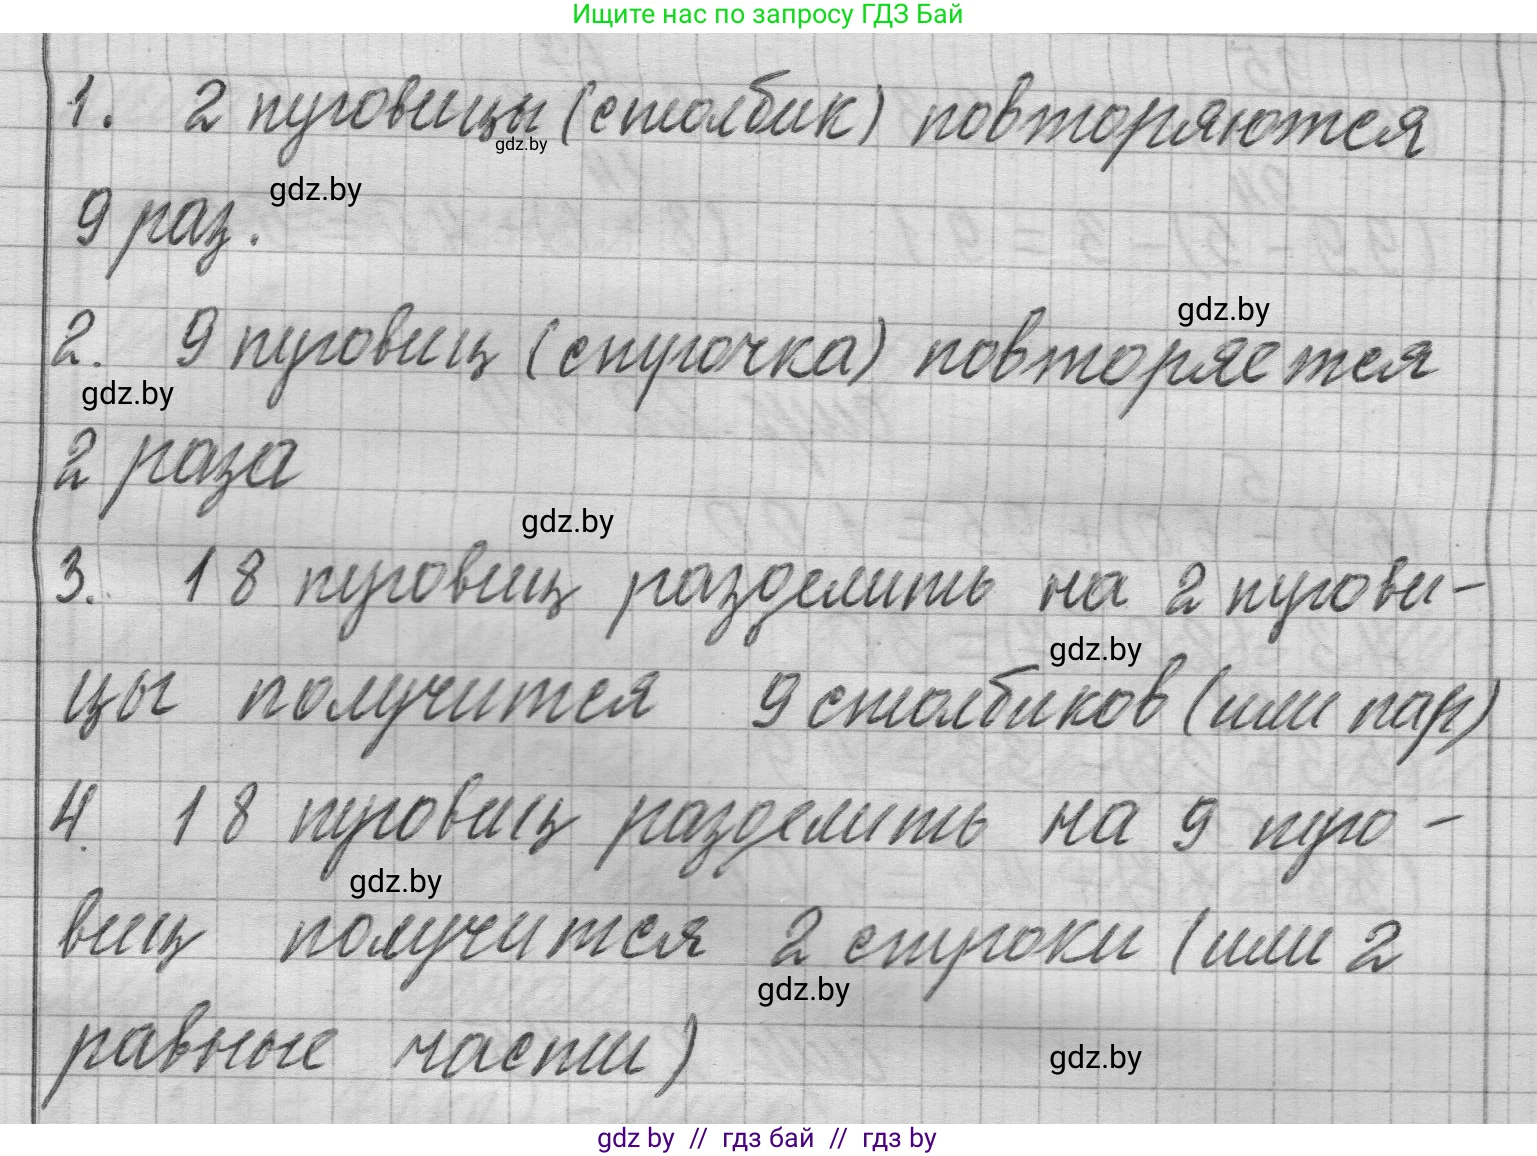 Ищите нас по запросу ГДЗ Бай
1. 2 пуговицы (столбик) повторяются
gdz.by
9 раз.
gdz.by
2. 9 пуговиц (строчка) повторяется
gdz.by
gdz.by
2 раза
gdz.by
3. 18 пуговиц разделить на 2 пугови-
gdz.by
цы получится 9 столбиков (или пар)
4. 18 пуговиц разделить на 9 пуго-
gdz.by
виц получится 2 строки (или 2
gdz.by
равные части)
gdz.by
gdz by // гдз бай // гдз by